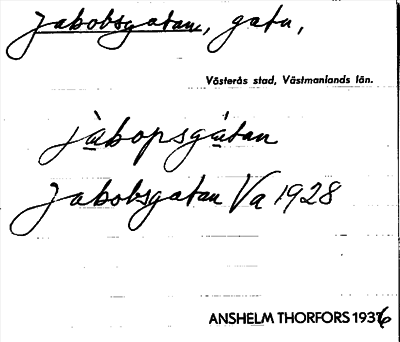 Jakobsgatan, gata,
Västerås stad, Västmanlands län.
jàkopsgátan
Jakobsgatan Va 1928
ANSHELM THORFORS 1936